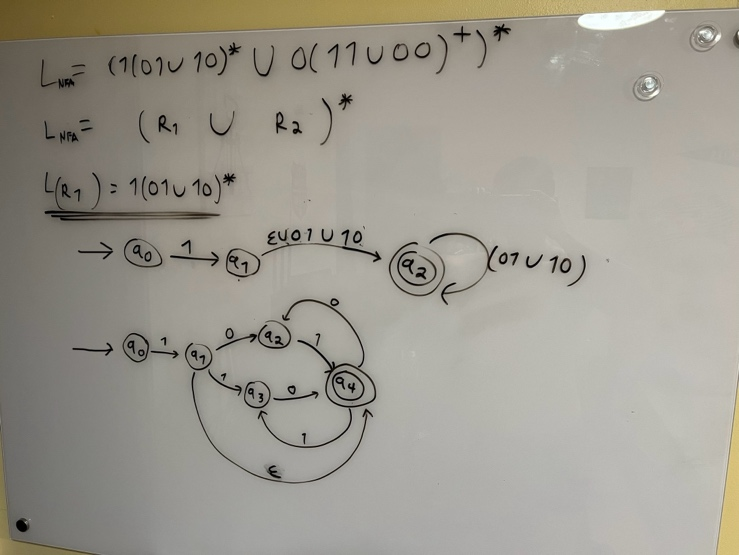 L_NFA = (1(01∪10)* ∪ 0(11∪00)⁺)*
L_NFA = (R₁ ∪ R₂)*
L(R₁) = 1(01∪10)*
→ q₀ 1 q₁ ε∪01∪10 q₂ (01∪10)
→ q₀ 1 q₁ 0 q₂ 1 0
1 q₃ 0 q₄
1
ε